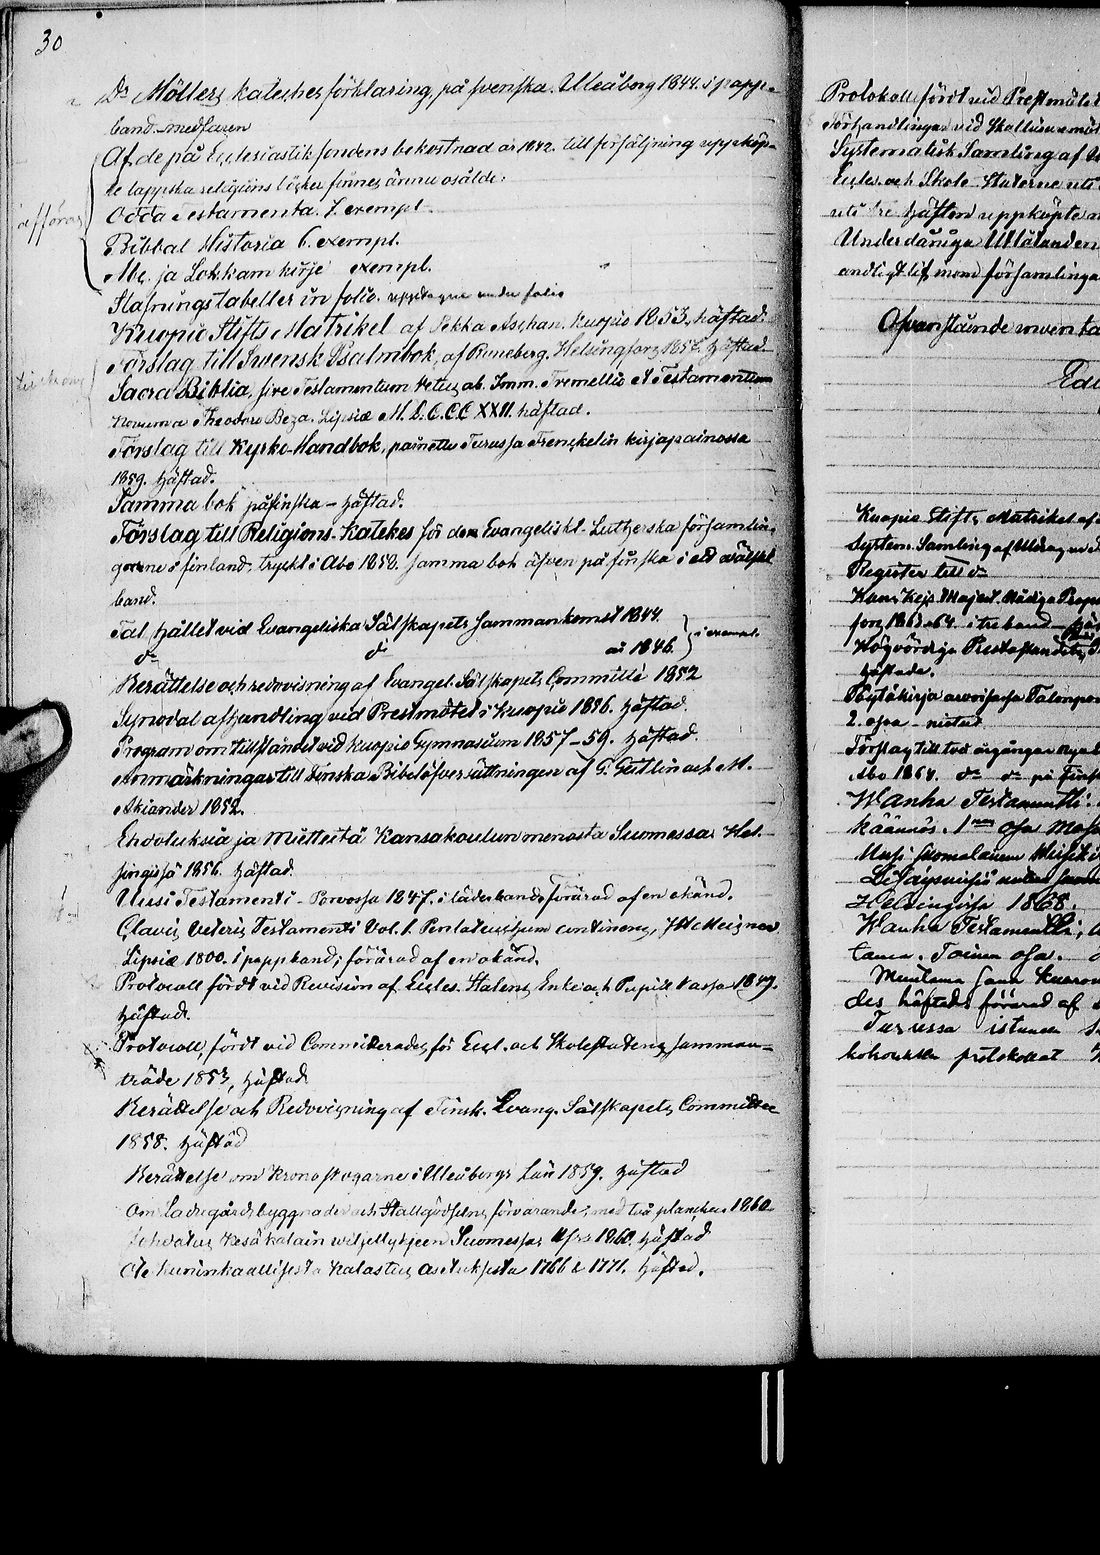 30
Dr Möllers kateches förklaring, på svenska. Uleåborg 1844. i papp-
band. medfaren
Af de på Ecclesiastik fondens bekostnad år 1842. till försäljning uppköp-
te lappska religions böcker finnes ännu osålde.
afföras
Odda Testamenta. 7. exempl.
Bibbal Historia 6. exempl.
Abc. ja Lokkam kirje exempl.
Stafningstabeller in folio. upptagne under folio
Kuopio Stifts Matrikel af Pekka Aschan. Kuopio 1853. häftad.
Förslag till Swensk Psalmbok, af Runeberg. Helsingfors 1856. häftad.
Sacra Biblia, sive Testamentum Vetus ab. Imm. Tremellio et Testamentum
Novum a Theodoro Beza. Lipsiæ M.D.C.CC.XXII. häftad.
Förslag till Kyrko-Handbok, painettu Turussa Frenckelin kirjapainossa
1859. häftad.
Samma bok på finska - häftad.
Förslag till Religions-Katekes för den Evangeliskt-Lutherska församlin-
garne i finland, tryckt i Åbo 1850. samma bok äfven på finska i ett wälskt
band.
Tal hållet vid Evangeliska Sälskapets sammankomst 1844.
do do år 1846. exempl.
Berättelse och redovisning af Evangel. Sälskapets Committé 1852
Synodal afhandling vid Prestmötet i Kuopio 1856. häftad.
Program om tillståndet vid Kuopio Gymnasium 1857-59. häftad.
Anmärkningar till Finska Bibelöfversättningen af G. Geitlin och M.
Akiander 1852.
Ehdotuksia ja Mietteitä Kansakoulun menosta Suomessa. Hel-
singissä 1856. häftad.
Uusi Testamenti - Porvossa 1847. i läderband, förärad af en okänd.
Clavis Veteris Testamenti Vol. 1. Pentateuchum continens,
Lipsiæ 1800. i pappband; förärad af en okänd.
Protocoll fördt vid Revision af Eccles. Statens Enke och Pupill kassa 1849.
häftadt.
Protocoll, fördt vid Committerades för Eccl. och Skolestatens samman-
träde 1853, häftadt
Berättelse och Redovisning af Finsk. Evang. Sälskapets Committee
1858. häftad
Berättelse om Kronoskogarne i Uleåborgs Län 1859. häftad
Om Ladugårdsbyggnader och Stallgödselns förvarande, med två plancher 1860
Johdatus Kesäkalain wiljellykseen Suomessa 1860. häftad
Ote kuninkaallisesta Kalastus asetuksesta 1766 & 1771. häftad.
Protokoll fördt vid Prestmötet
Förhandlingar vid
Systematisk Samling af
Eccles. och Skole-Staterne
uti tre häften uppköpte
Underdåniga Utlåtanden
andligt lif inom församlinga
Ofvanstående inventa
Kuopio Stifts Matrikel af
System. Samling af Utdrag
Register till do
Hans Kejs. Majest. Nådiga Prop
fors 1863-64. i tre band
Högvördiga Presteståndets
häftade.
2. osa
Förslag till två årgångar nya
Åbo 1864. do do på Finsk
Wanha Testamentti
käännös. 1nen osa
Uusi suomalainen
Helsingissä 1868.
Wanha Testamentti,
Toinen osa.
Muutama sana
des häftet förärad af
Turussa
protokollat